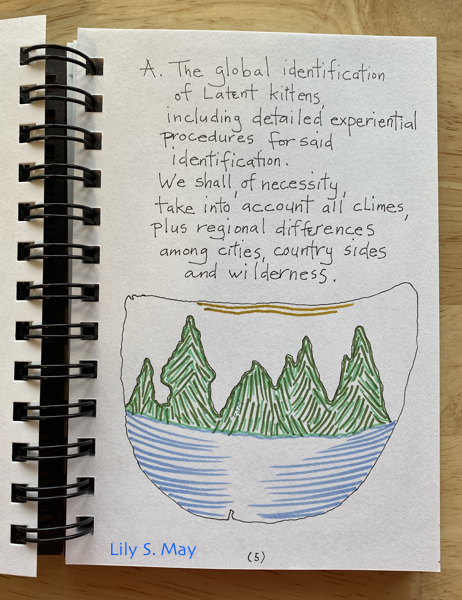 A. The global identification
of Latent kittens,
including detailed experiential
procedures for said
identification.
We shall, of necessity,
take into account all climes,
plus regional differences
among cities, country sides
and wilderness.
Lily S. May
(5)